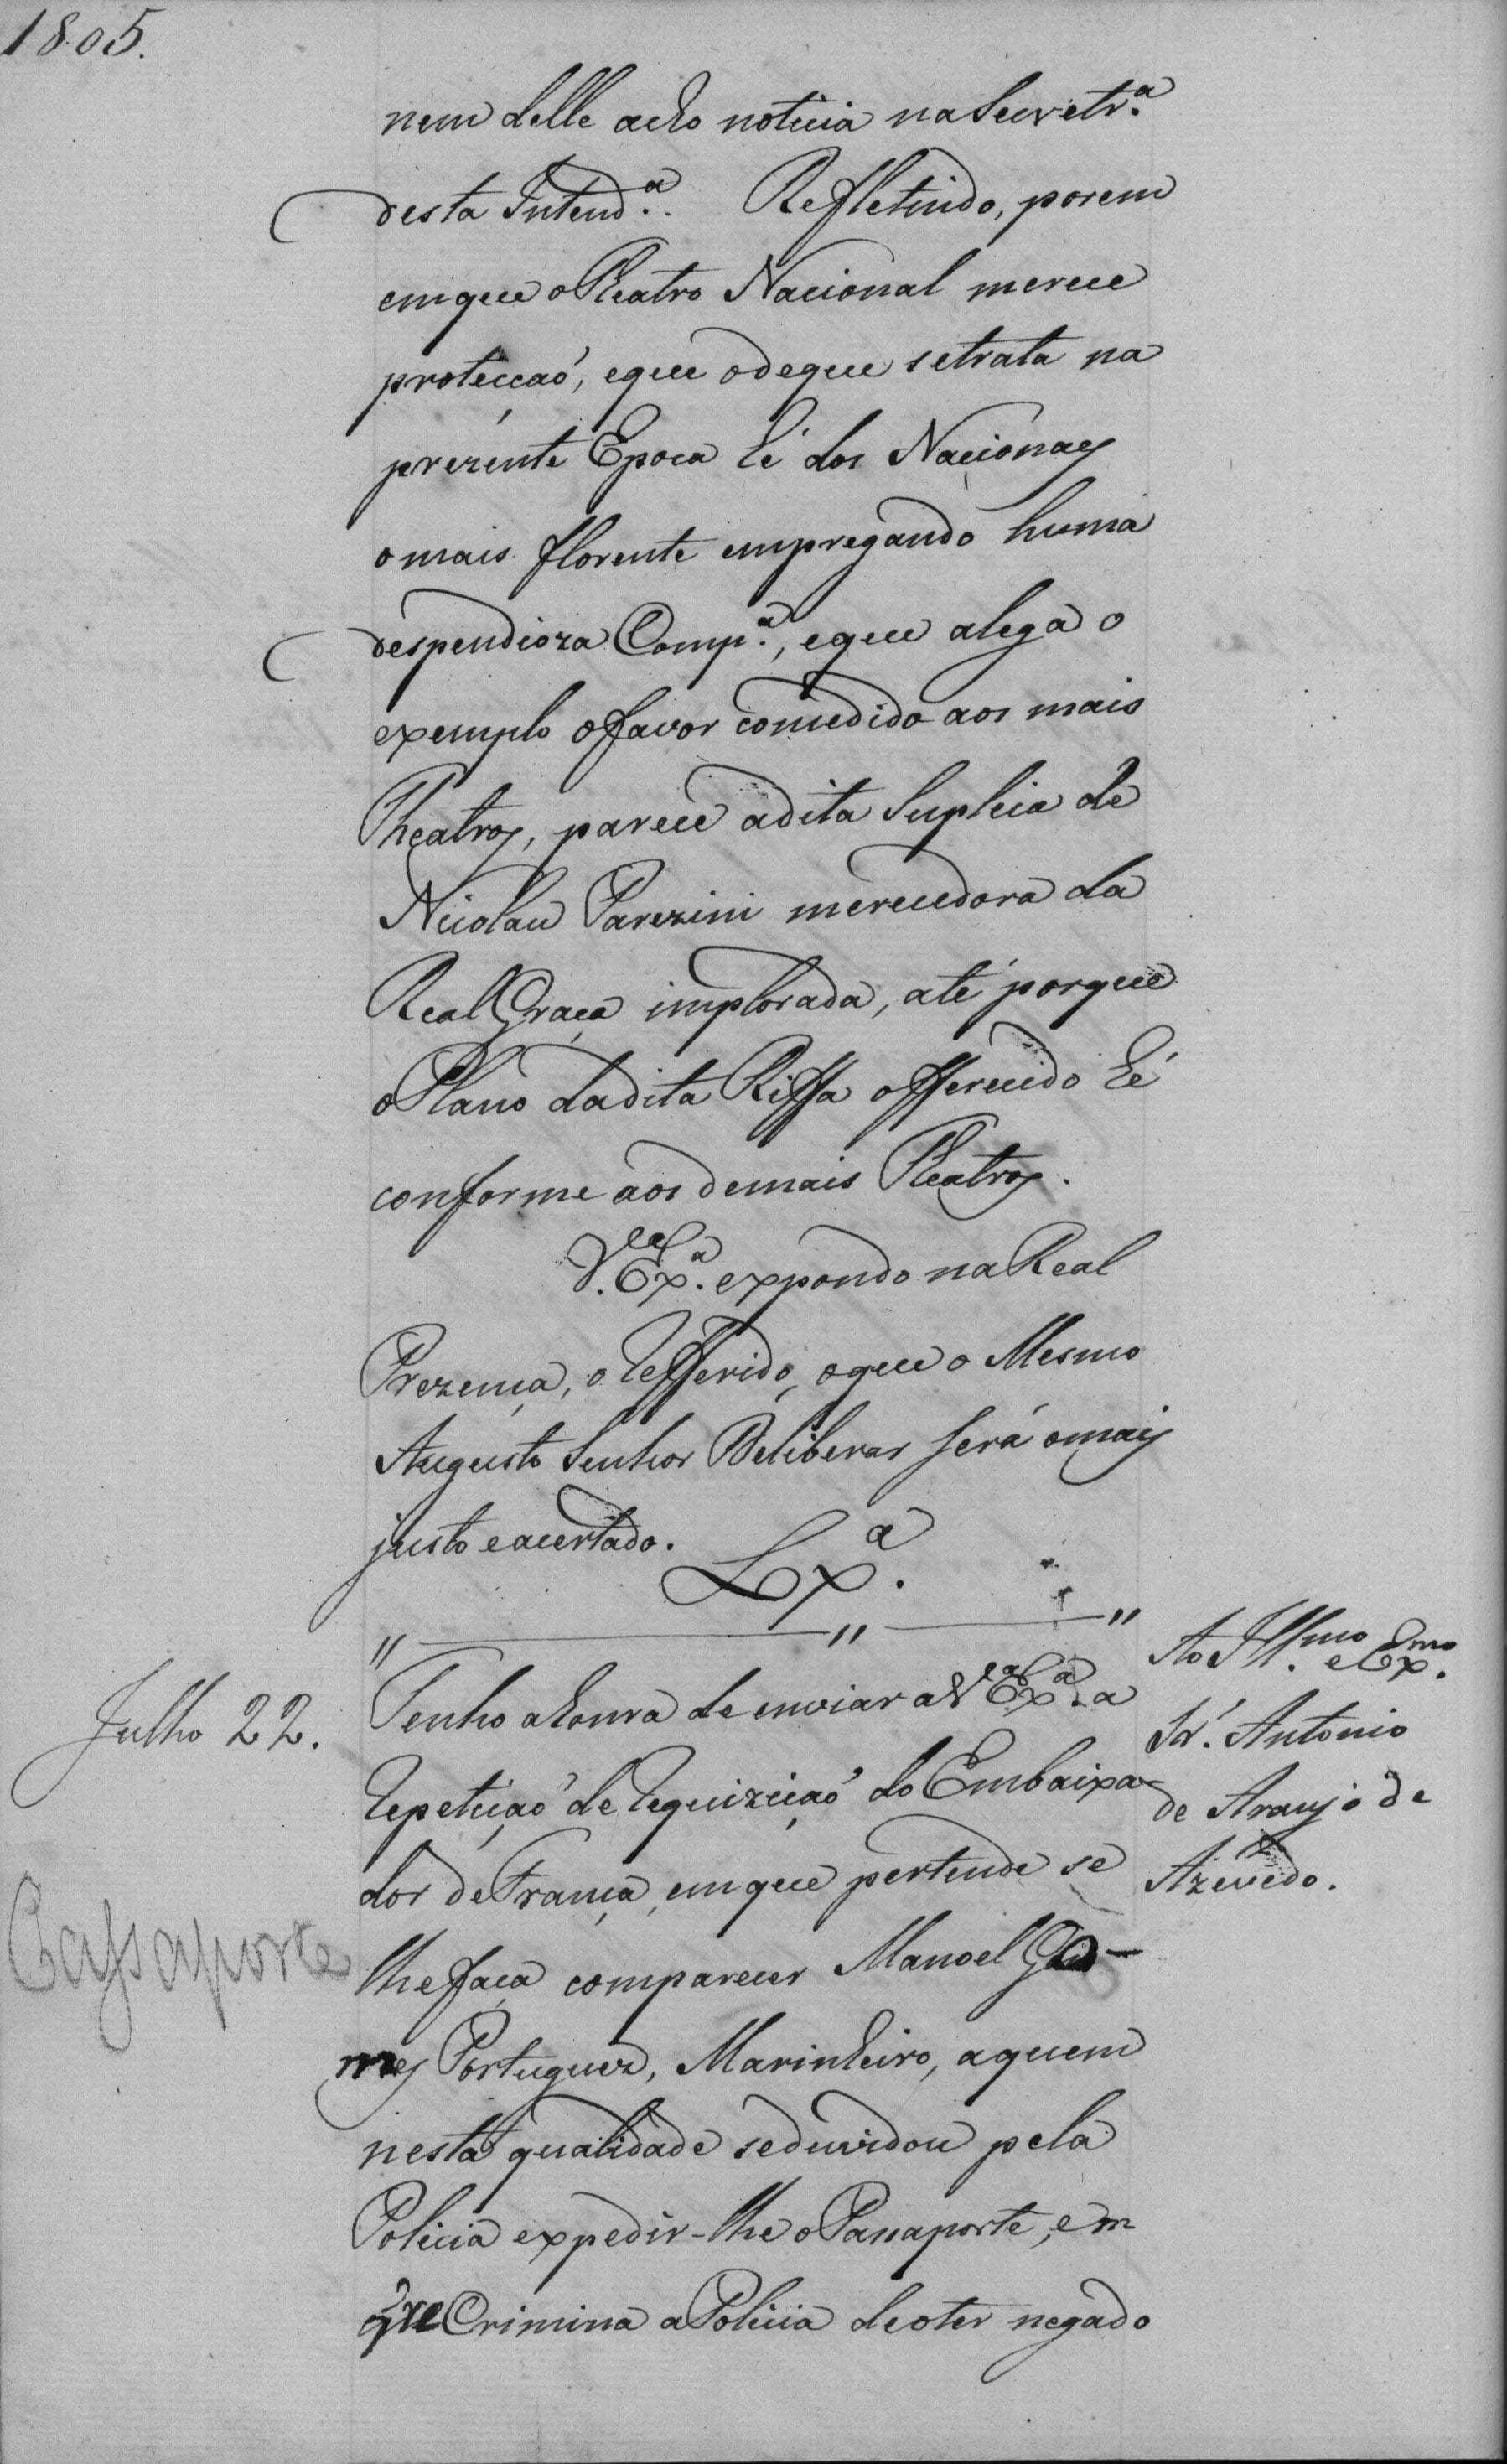 1805.
nem delle acho noticia na Secretr.ª
desta Intend.ª. Refletindo, porem
em que o Theatro Nacional merece
protecçaó, e que o de que se trata na
prezente Epoca hé dos Nacionaes
o mais florente empregando huma
despendioza Comp.ª, e que alega o
exemplo o favor concedido aos mais
Theatros, parece a dita Suplica de
Nicolau Parezini merecedora da
Real Graça implorada, até porque
o Plano da dita Riffa offerecido hé
conforme aos demais Theatros.
V. Ex.ª expondo na Real
Prezença, o refferido, o que o Mesmo
Augusto Senhor Deliberar será o mais
justo e acertado.
Lx.ª
" " "
Julho 22.
Tenho a honra de enviar a V Ex.ª a
repetiçaó de requiziçaó do Embaixa-
dor de França, em que pertende se
lhe faça comparecer Manoel Go-
mes Portuguez, Marinheiro, a quem
nesta qualidade se duvidou pela
Policia expedir-lhe o Passaporte, em
que Crimina a Policia de o ter negado
Ao Ill.mo e Ex.mo
Sr. Antonio
de Araujo de
Azevedo.
Passaporte